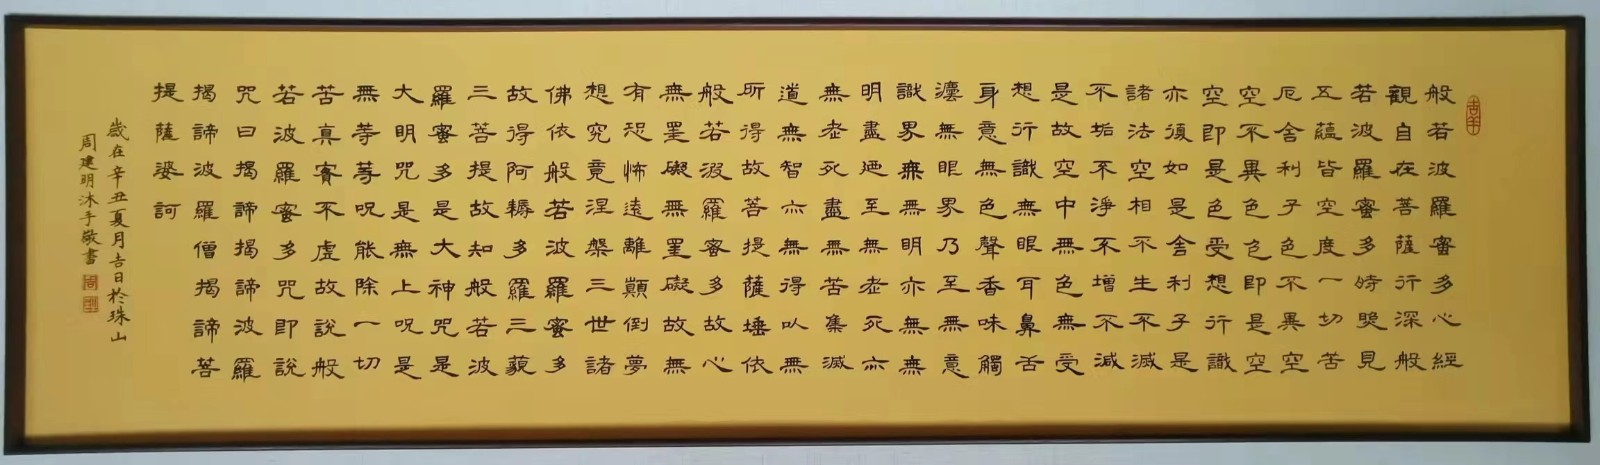 般若波羅蜜多心經
觀自在菩薩行深般
若波羅蜜多時照見
五蘊皆空度一切苦
厄舍利子色不異空
空不異色色即是空
空即是色受想行識
亦復如是舍利子是
諸法空相不生不滅
不垢不淨不增不減
是故空中無色無受
想行識無眼耳鼻舌
身意無色聲香味觸
灋無眼界乃至無意
識界無無明亦無無
明盡廼至無老死亦
無老死盡無苦集滅
道無智亦無得以無
所得故菩提薩埵依
般若波羅蜜多故心
無罣礙無罣礙故無
有恐怖遠離顛倒夢
想究竟涅槃三世諸
佛依般若波羅蜜多
故得阿耨多羅三藐
三菩提故知般若波
羅蜜多是大神咒是
大明咒是無上咒是
無等等咒能除一切
苦真實不虛故說般
若波羅蜜多咒即說
咒曰揭諦揭諦波羅
揭諦波羅僧揭諦菩
提薩婆訶
歲在辛丑夏月吉日於珠山
周建明沐手敬書